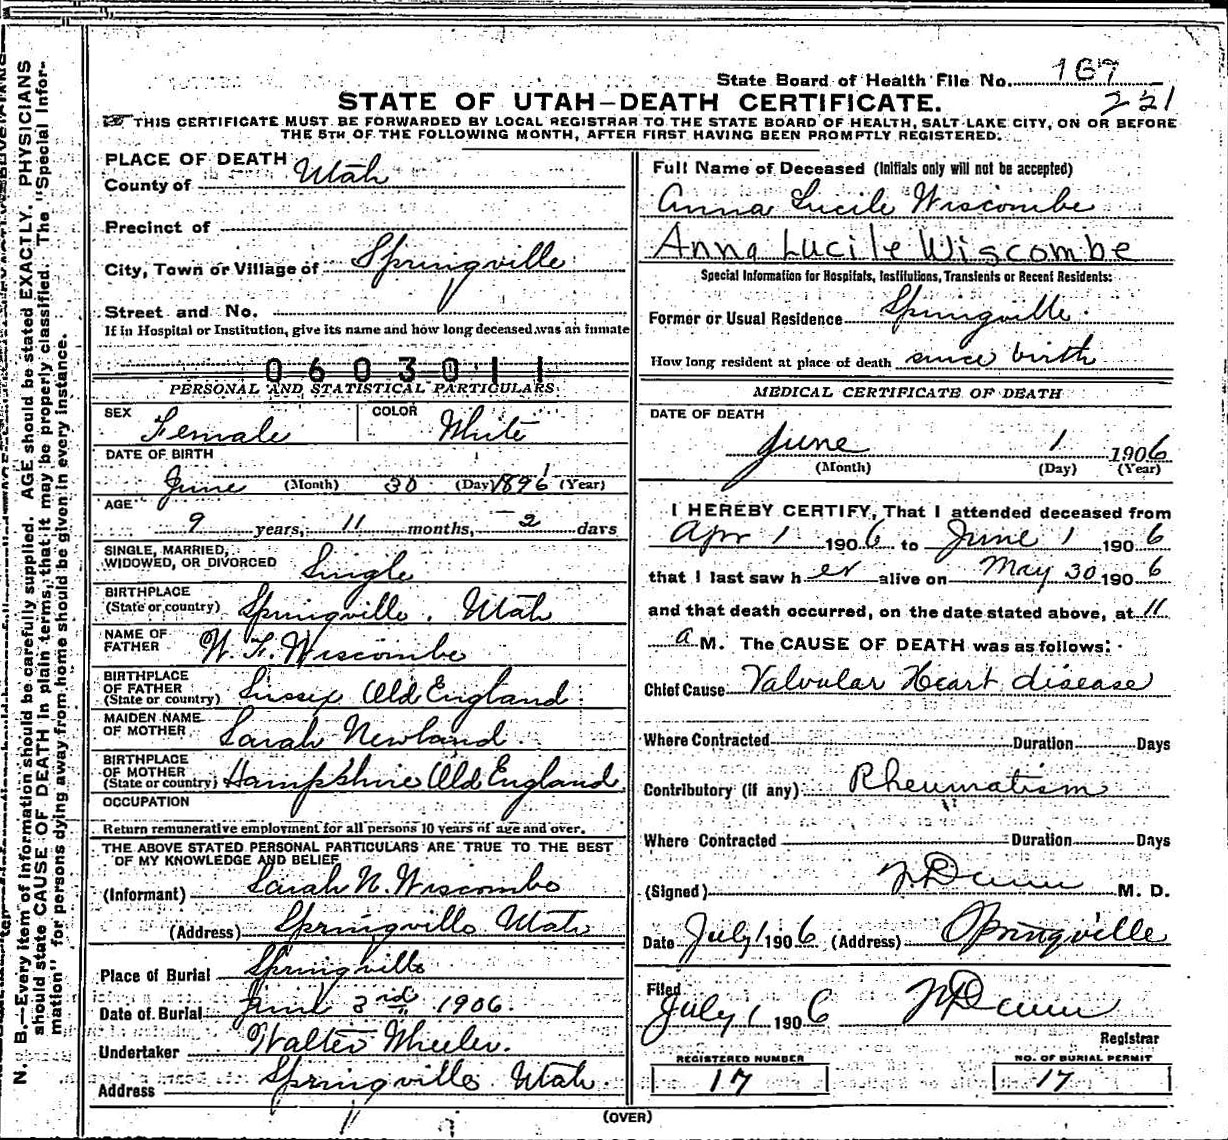 State Board of Health File No. 167
221
STATE OF UTAH—DEATH CERTIFICATE.
THIS CERTIFICATE MUST BE FORWARDED BY LOCAL REGISTRAR TO THE STATE BOARD OF HEALTH, SALT LAKE CITY, ON OR BEFORE
THE 5TH OF THE FOLLOWING MONTH, AFTER FIRST HAVING BEEN PROMPTLY REGISTERED.
PLACE OF DEATH
County of Utah
Precinct of
City, Town or Village of Springville
Street and No.
If in Hospital or Institution, give its name and how long deceased was an inmate
0603011
PERSONAL AND STATISTICAL PARTICULARS
SEX Female COLOR White
DATE OF BIRTH
June (Month) 30 (Day) 1896 (Year)
AGE
9 years, 11 months, 2 days
SINGLE, MARRIED,
WIDOWED, OR DIVORCED Single
BIRTHPLACE
(State or country) Springville. Utah
NAME OF
FATHER W. F. Wiscombe
BIRTHPLACE
OF FATHER
(State or country) Sussex Old England
MAIDEN NAME
OF MOTHER Sarah Newland
BIRTHPLACE
OF MOTHER
(State or country) Hampshire Old England
OCCUPATION
Return remunerative employment for all persons 10 years of age and over.
THE ABOVE STATED PERSONAL PARTICULARS ARE TRUE TO THE BEST
OF MY KNOWLEDGE AND BELIEF
(Informant) Sarah N. Wiscombe
(Address) Springville Utah
Place of Burial Springville
Date of Burial June 3rd 1906.
Undertaker Walter Wheeler.
Address Springville Utah
Full Name of Deceased (Initials only will not be accepted)
Anna Lucile Wiscombe
Anna Lucile Wiscombe
Special Information for Hospitals, Institutions, Transients or Recent Residents:
Former or Usual Residence Springville.
How long resident at place of death since birth
MEDICAL CERTIFICATE OF DEATH
DATE OF DEATH
June 1 1906
(Month) (Day) (Year)
I HEREBY CERTIFY, That I attended deceased from
Apr 1 1906 to June 1 1906
that I last saw her alive on May 30 1906
and that death occurred, on the date stated above, at 11
a M. The CAUSE OF DEATH was as follows:
Chief Cause Valvular Heart disease
Where Contracted Duration Days
Contributory (if any) Rheumatism
Where Contracted Duration Days
(Signed) M. D.
Date July 1 1906 (Address) Springville
Filed
July 1 1906
Registrar
REGISTERED NUMBER
17
NO. OF BURIAL PERMIT
17
(OVER)
N. B.—Every item of information should be carefully supplied. AGE should be stated EXACTLY. PHYSICIANS
should state CAUSE OF DEATH in plain terms, that it may be properly classified. The "Special Infor-
mation" for persons dying away from home should be given in every instance.